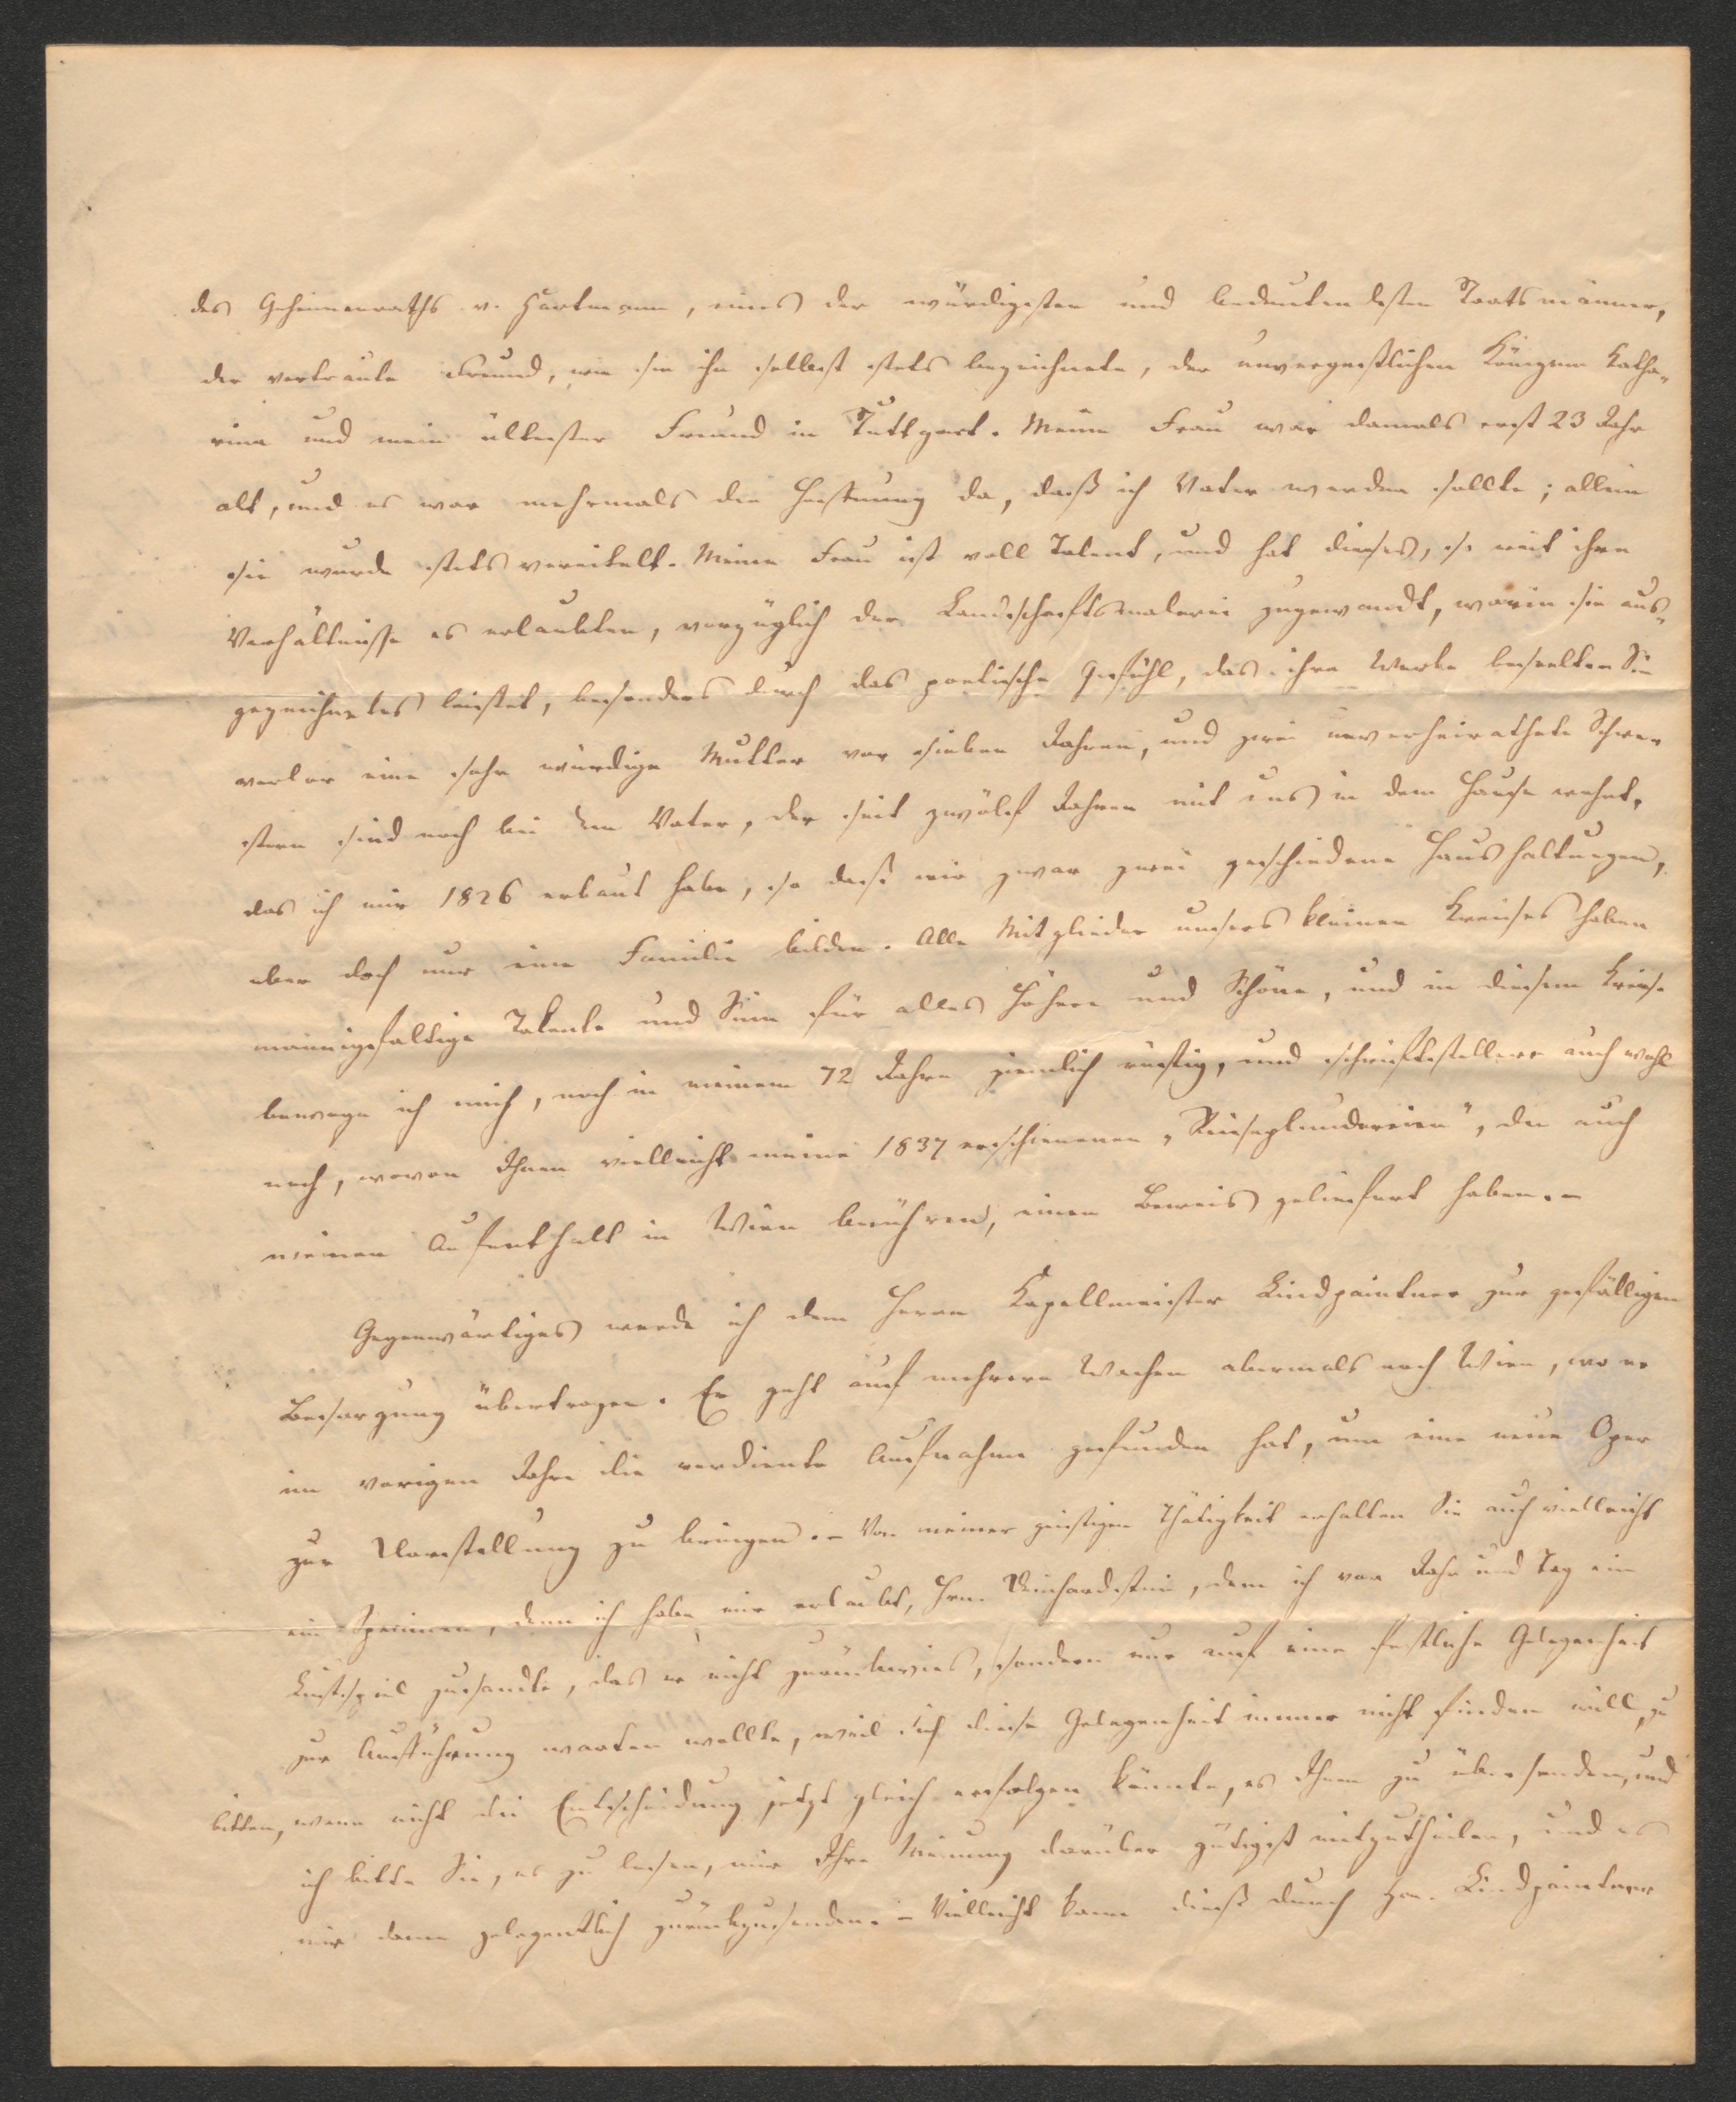 des Geheimenraths v. Hartmann, eines der würdigsten und bedeutendsten Staatsmänner,
der vertraute Freund, wie sie ihn selbst stets bezeichnete, der unvergeßlichen Königinn Katha-
rina und mein ältester Freund in Stuttgart. Meine Frau war damals erst 23 Jahr
alt, und es war mehrmals die Hoffnung da, daß ich Vater werden sollte; allein
sie wurde stets vereitelt. Meine Frau ist voll Talent, und hat dieses, so weit ihre
Verhältnisse es erlaubten, vorzüglich der Landschaftsmalerei zugewandt, worin sie aus-
gezeichnetes leistet, besonders durch das poetische Gefühl, das ihre Werke beseelt. Sie
verlor eine sehr würdige Mutter vor sieben Jahren, und zwei unverheirathete Schwe-
stern sind noch bei dem Vater, der seit zwölf Jahren mit uns in dem Hause wohnt,
das ich mir 1826 erbaut habe, so daß wir zwar zwei geschiedene Haushaltungen,
aber doch nur eine Familie bilden. Alle Mitglieder unsers kleinen Kreises haben
mannigfaltige Talente und Sinn für alles Höhere und Schöne, und in diesem Kreise
bewege ich mich, noch in meinem 72 Jahre ziemlich rüstig, und schriftstellere auch wohl
noch, wovon Ihnen vielleicht meine 1837 erschienenen „Reiseplaudereien", die auch
meinen Aufenthalt in Wien berühren, einen Beweis geliefert haben. –
Gegenwärtiges werde ich dem Herrn Kapellmeister Lindpaintner zur gefälligen
Besorgung übertragen. Er geht auf mehrere Wochen abermals nach Wien, wo er
im vorigen Jahre die verdiente Aufnahme gefunden hat, um eine neue Oper
zur Vorstellung zu bringen. – Von meiner geistigen Thätigkeit erhalten Sie auch vielleicht
ein Specimen, denn ich habe mir erlaubt, Hrn. Deinhardstein, dem ich vor Jahr und Tag ein
Lustspiel zusandte, das er nicht zurückwies, sondern nur auf eine festliche Gelegenheit
zur Aufführung warten wollte, weil sich diese Gelegenheit immer nicht finden will, zu
bitten, wenn nicht die Entscheidung jetzt gleich erfolgen könnte, es Ihnen zu übersenden, und
ich bitte Sie, es zu lesen, mir Ihre Meinung darüber gütigst mitzutheilen, und es
mir dann gelegentlich zurückzusenden. – Vielleicht kann dieß durch Hrn. Lindpaintner